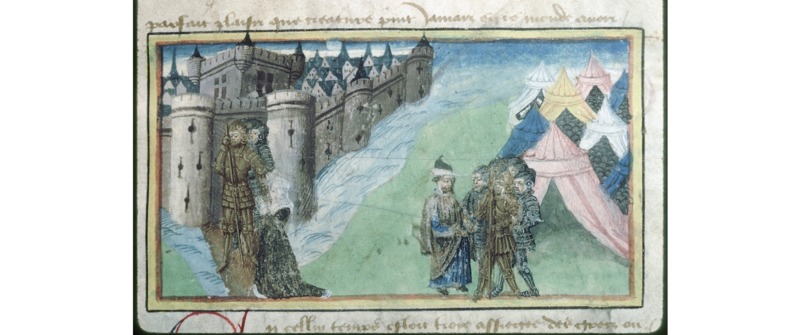 parfait plaisir que creature peut Jamais en ce monde avoir
En cellui temps estoit troie assiegee des grecz ou